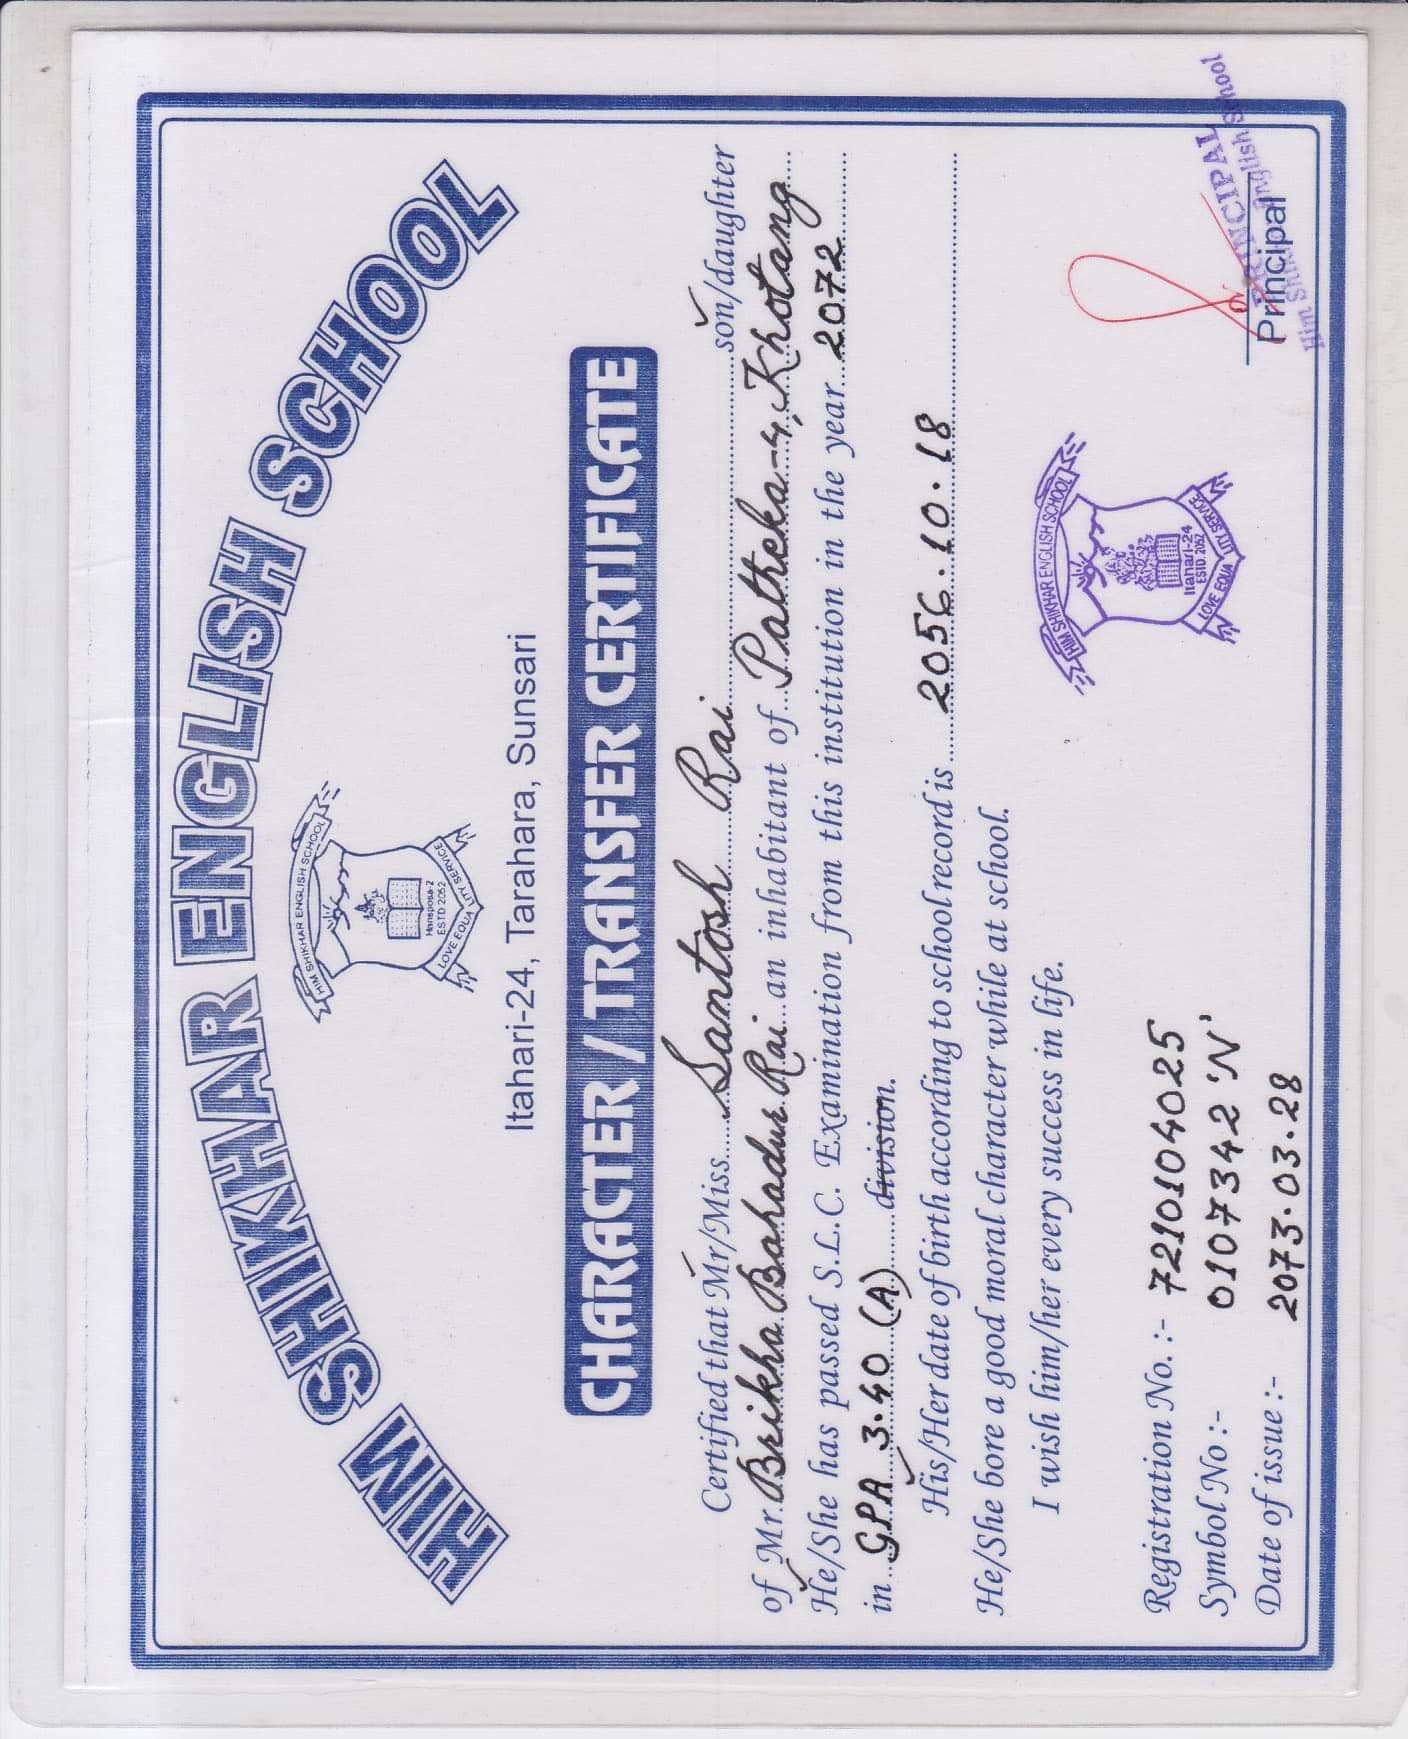 HIM SHIKHAR ENGLISH SCHOOL
HIM SHIKHAR ENGLISH SCHOOL
Hansposa-2
ESTD. 2052
LOVE EQUALITY SERVICE
Itahari-24, Tarahara, Sunsari
CHARACTER / TRANSFER CERTIFICATE
Certified that Mr/Miss Santosh Rai son/daughter
of Mr. Brikha Bahadur Rai an inhabitant of Patheka-4, Khotang
He/She has passed S.L.C. Examination from this institution in the year 2072
in GPA 3.40 (A) division.
His/Her date of birth according to school record is 2056.10.18
He/She bore a good moral character while at school.
I wish him/her every success in life.
Registration No. :- 7210104025
Symbol No :- 0107342 'N'
Date of issue :- 2073.03.28
HIM SHIKHAR ENGLISH SCHOOL
Itahari-24
ESTD. 2052
LOVE EQUALITY SERVICE
PRINCIPAL
Him Shikhar English School
Principal